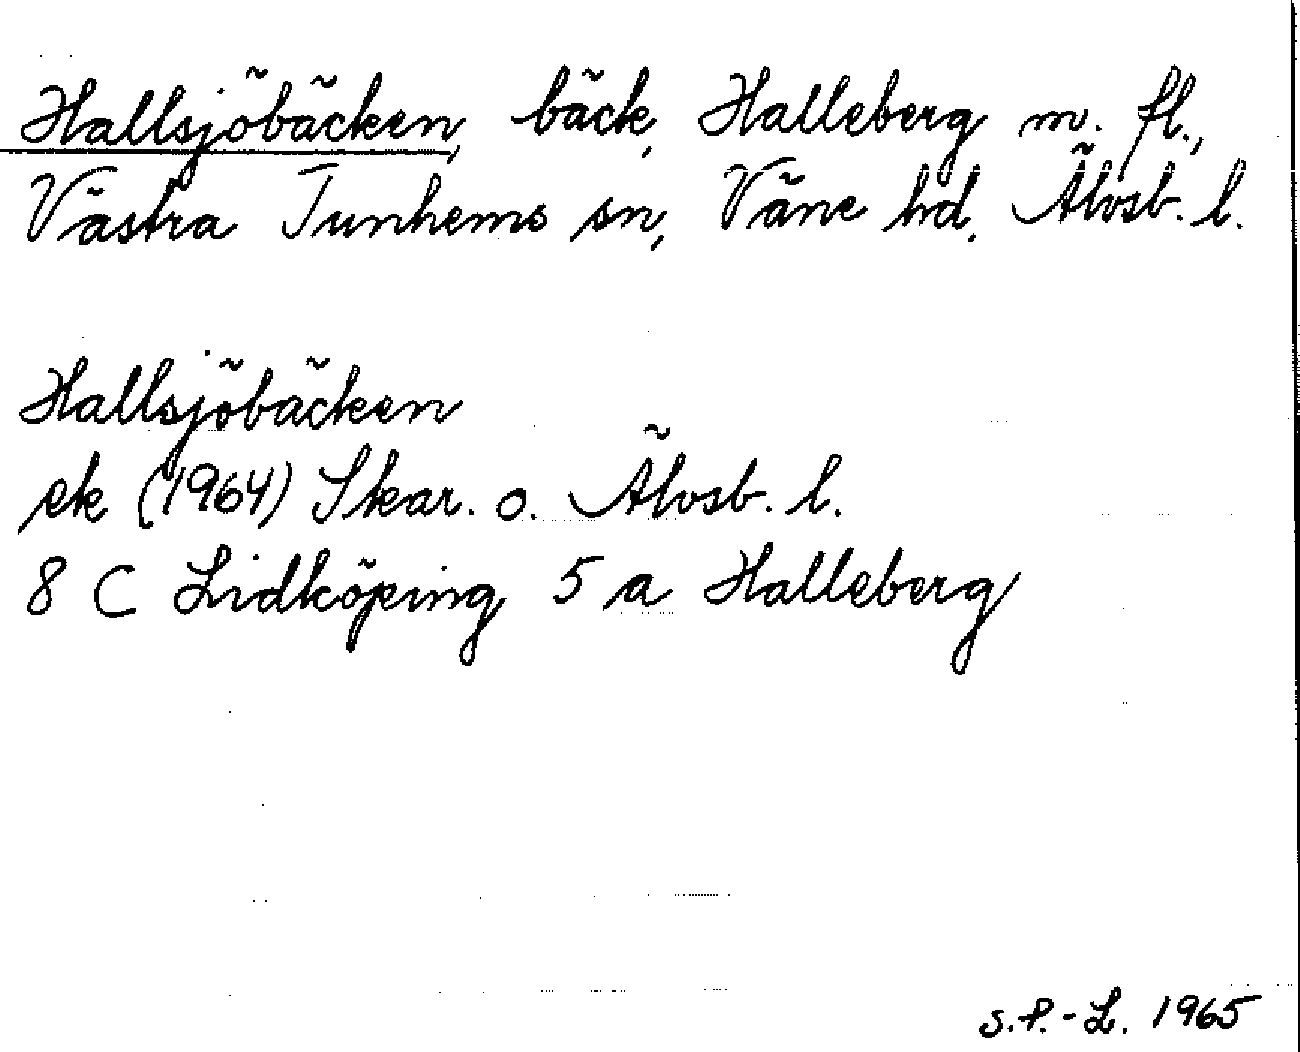 Hallsjöbäcken, bäck, Halleberg m. fl.,
Västra Tunhems sn, Väne hd, Älvsb. l.
Hallsjöbäcken
ek (1964) Skar. o. Älvsb. l.
8 C Lidköping 5 a Halleberg
S.P.-L. 1965